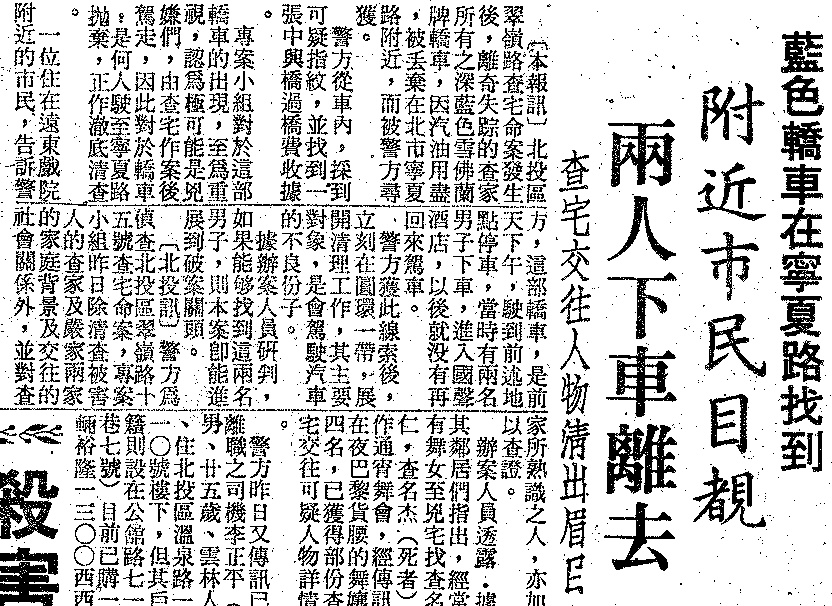 藍色轎車在寧夏路找到
附近市民目覩
兩人下車離去
查宅交往人物清出眉目
〔本報訊〕北投區
翠嶺路查宅命案發生
後，離奇失踪的查家
所有之深藍色雪佛蘭
牌轎車，因汽油用盡
，被丟棄在北市寧夏
路附近，而被警方尋
獲。
警方從車內，採到
可疑指紋，並找到一
張中興橋過橋費收據
。
專案小組對於這部
轎車的出現，至爲重
視，認爲極可能是兇
嫌們，由查宅作案後
駕走，因此對於轎車
：是何人駛至寧夏路
拋棄，正作澈底清查
。
一位住在遠東戲院
附近的市民，告訴警
方，這部轎車，是前
天下午，駛到前述地
點停車，當時有兩名
男子下車，進入國聲
酒店，以後就没有再
回來駕車。
警方獲此線索後，
立刻在圓環一帶，展
開清理工作，其主要
對象，是會駕駛汽車
的不良份子。
據辦案人員研判，
如果能够找到這兩名
男子，則本案卽能進
展到破案關頭。
〔北投訊〕警方爲
偵查北投區翠嶺路十
五號查宅命案，專案
小組昨日除清查被害
人的查家及嚴家兩家
的家庭背景及交往的
社會關係外，並對查
家所熟識之人，亦加
以查證。
辦案人員透露．據
其鄰居們指出，經常
有舞女至兇宅找查名
仁，查名杰（死者）
作通宵舞會，經傳訊
在夜巴黎貨腰的舞孃
四名，已獲得部份查
宅交往可疑人物詳情
。
警方昨日又傳訊已
離職之司機李正平（
男、廿五歲、雲林人
、住北投區溫泉路一
一〇號樓下，但其戶
籍則設在公館路七一
巷七號）目前已購一
輛裕隆一三〇〇西西
殺害